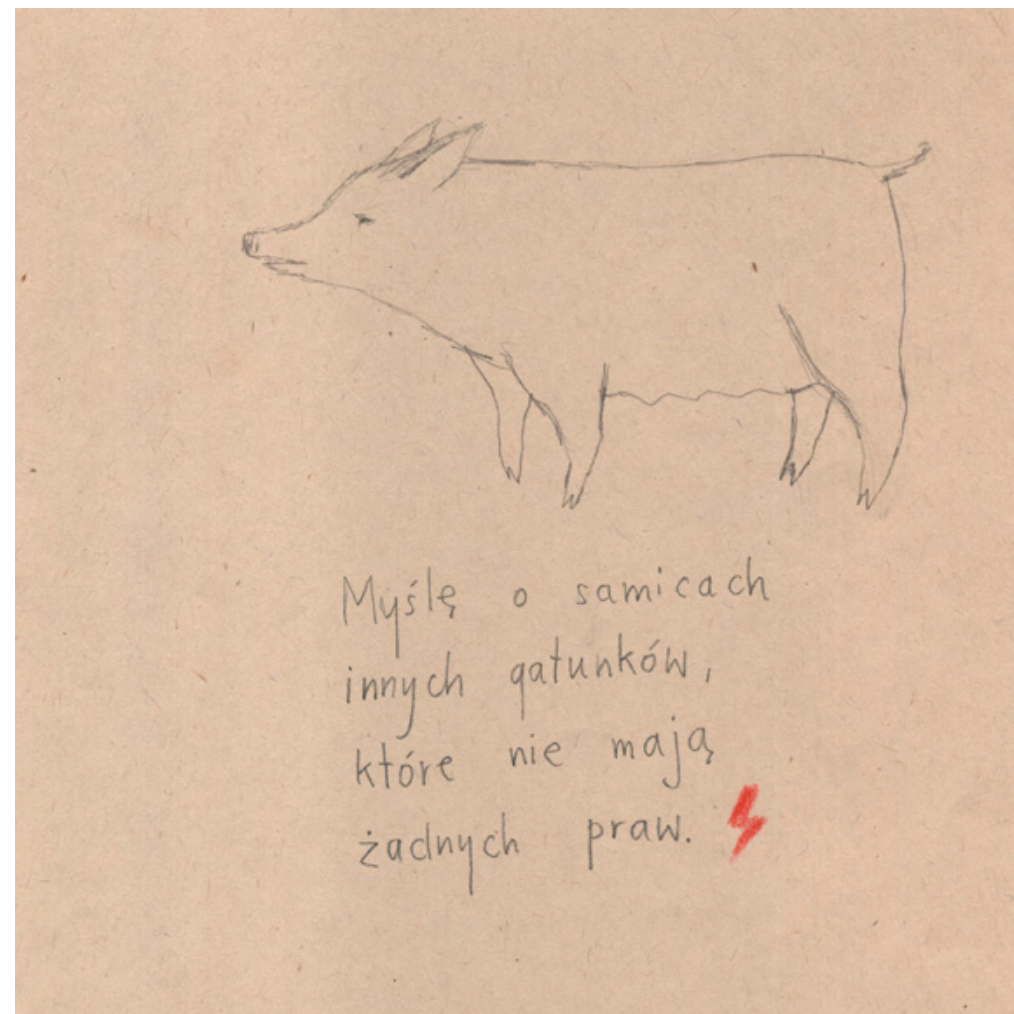 Myślę o samicach
innych gatunków,
które nie mają
żadnych praw.